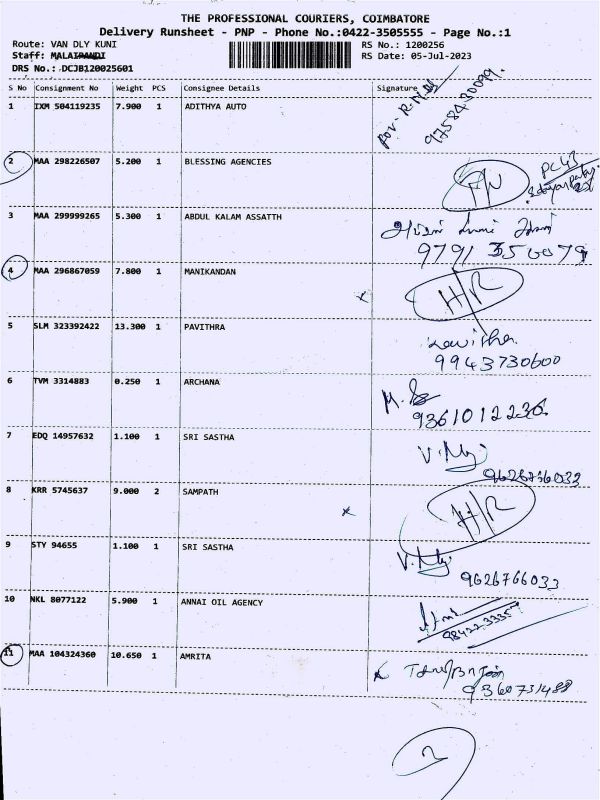 THE PROFESSIONAL COURIERS, COIMBATORE
Delivery Runsheet - PNP - Phone No.:0422-3505555 - Page No.:1
Route: VAN DLY KUNI RS No.: 1200256
Staff: MALAIPANDI RS Date: 05-Jul-2023
DRS No.: DCJB120025601
S No Consignment No Weight PCS Consignee Details Signature
1 IXM 504119235 7.900 1 ADITHYA AUTO
97584 30099
2 MAA 298226507 5.200 1 BLESSING AGENCIES
PC 43
3 MAA 299999265 5.300 1 ABDUL KALAM ASSATTH
9791 350079
4 MAA 296867059 7.800 1 MANIKANDAN
H/R
5 SLM 323392422 13.300 1 PAVITHRA
9943730600
6 TVM 3314883 0.250 1 ARCHANA
9361012236
7 EDQ 14957632 1.100 1 SRI SASTHA
9626766033
8 KRR 5745637 9.000 2 SAMPATH
H/R
9 STY 94655 1.100 1 SRI SASTHA
9626766033
10 NKL 8077122 5.900 1 ANNAI OIL AGENCY
11 MAA 104324360 10.650 1 AMRITA
9360731488